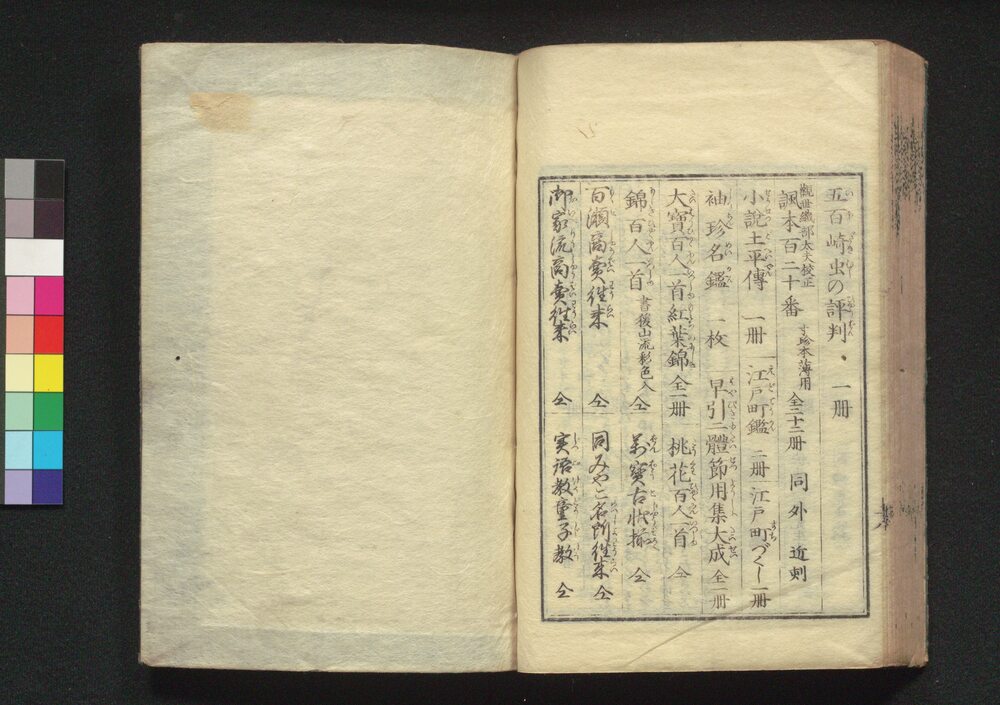 五百崎虫の評判 一冊
觀世織部太夫校正
諷本百二十番 寸珍本薄用 全二十二冊 同外 近刻
小説土平傳 一冊 江戸町鑑 二冊 江戸町づくし 一冊
袖珍名鑑 一枚 早引二體節用集大成 全一冊
大寶百人一首紅葉錦 全一冊 桃花百人一首 仝
錦百人一首 書後山流彩色入 仝 萬寶古状揃 仝
百瀬商賣徃来 仝 同みやこ名所徃来 仝
御家流商賣徃来 仝 実語教童子教 仝